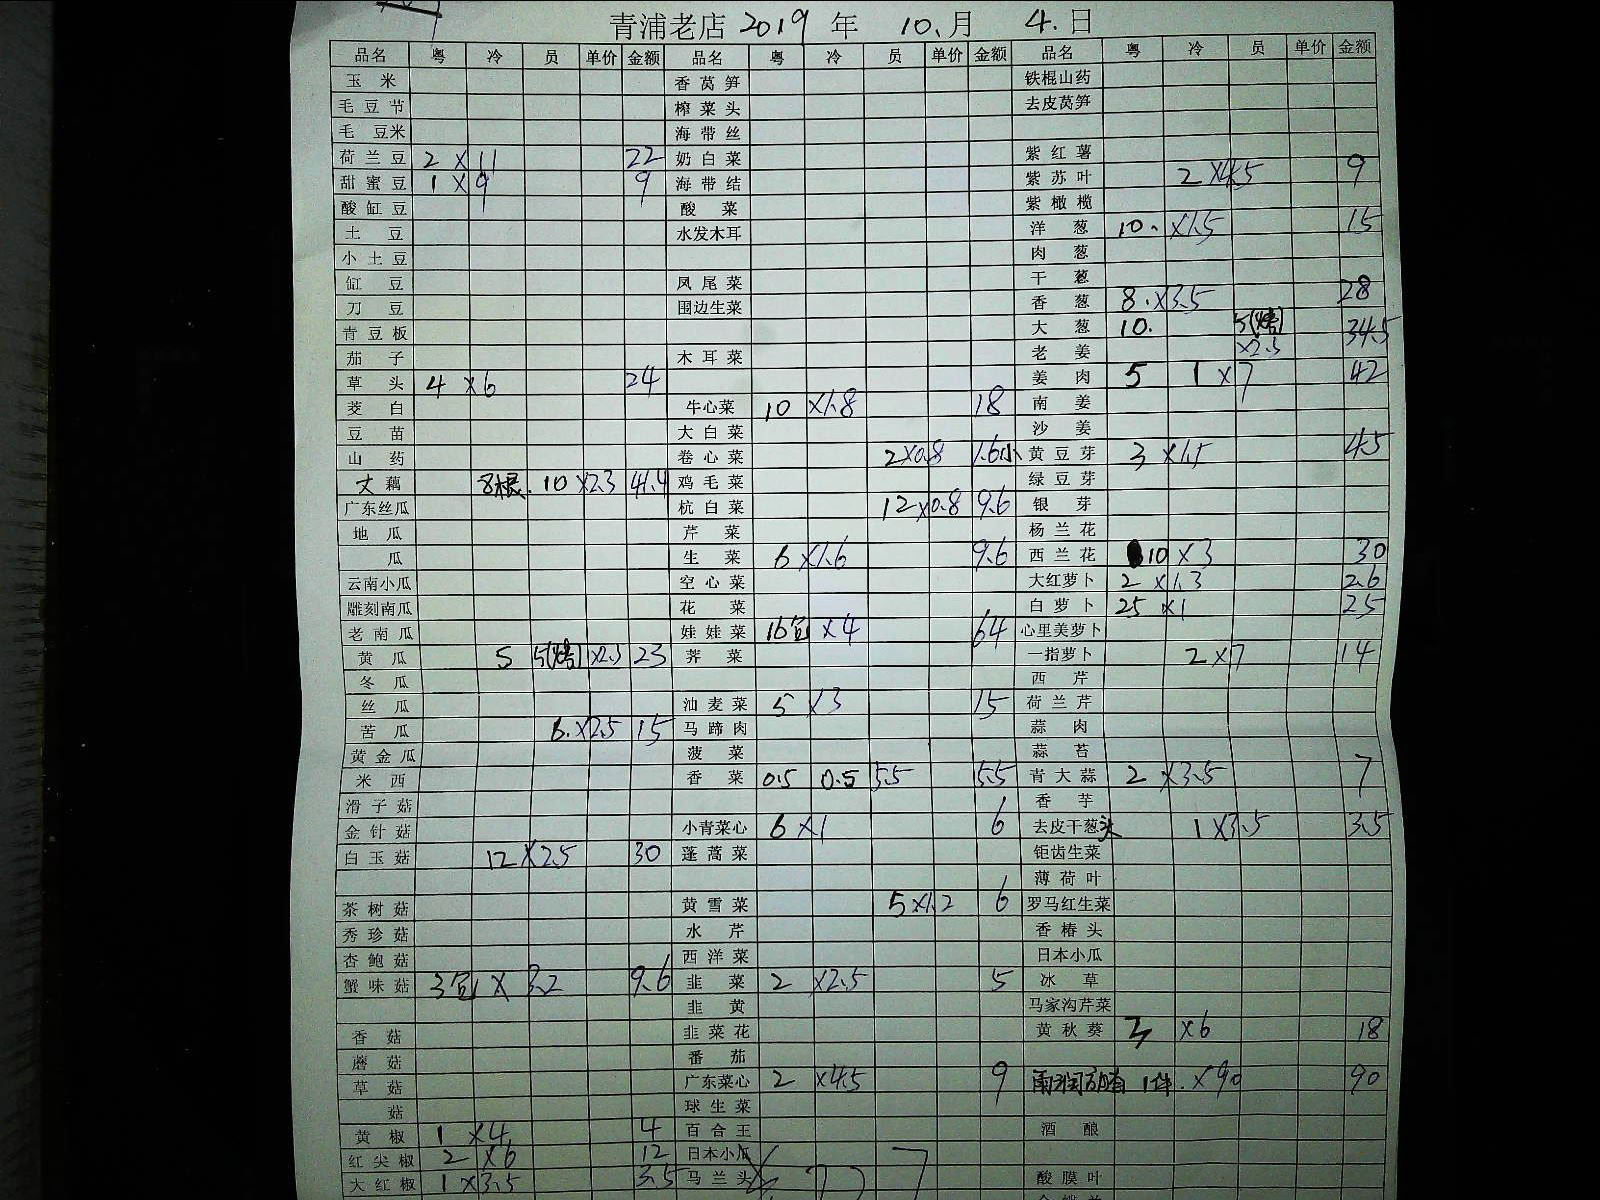 青浦老店 2019 年 10. 月 4. 日
品名 粤 冷 员 单价 金额 品名 粤 冷 员 单价 金额 品名 粤 冷 员 单价 金额
玉米 香莴笋 铁棍山药
毛豆节 榨菜头 去皮莴笋
毛豆米 海带丝
荷兰豆 2 ×11 22 奶白菜 紫红薯
甜蜜豆 1 ×9 9 海带结 紫苏叶 2 ×4.5 9
酸缸豆 酸菜 紫橄榄
土豆 水发木耳 洋葱 10. ×1.5 15
小土豆 肉葱
缸豆 凤尾菜 干葱
刀豆 围边生菜 香葱 8. ×3.5 28
青豆板 大葱 10. 5(烤) 34.5
茄子 木耳菜 老姜 ×2.3
草头 4 ×6 24 姜肉 5 1 ×7 42
茭白 牛心菜 10 ×1.8 18 南姜
豆苗 大白菜 沙姜
山药 卷心菜 2×0.8 1.6 小 黄豆芽 3 ×1.5 4.5
大藕 8根. 10 ×2.3 41.4 鸡毛菜 绿豆芽
广东丝瓜 杭白菜 12×0.8 9.6 银芽
地瓜 芹菜 杨兰花
瓜 生菜 6 ×1.6 9.6 西兰花 10 ×3 30
云南小瓜 空心菜 大红萝卜 2 ×1.3 2.6
雕刻南瓜 花菜 白萝卜 25 ×1 25
老南瓜 娃娃菜 16包 ×4 64 心里美萝卜
黄瓜 5 5(烤) ×2.3 23 荠菜 一指萝卜 2 ×7 14
冬瓜 西芹
丝瓜 油麦菜 5 ×3 15 荷兰芹
苦瓜 6. ×2.5 15 马蹄肉 蒜肉
黄金瓜 菠菜 蒜苔
米西 香菜 0.5 0.5 5.5 5.5 青大蒜 2 ×3.5 7
滑子菇 香芋
金针菇 小青菜心 6 ×1 6 去皮干葱头 1 ×3.5 3.5
白玉菇 12 ×2.5 30 蓬蒿菜 钜齿生菜
薄荷叶
茶树菇 黄雪菜 5×1.2 6 罗马红生菜
秀珍菇 水芹 香椿头
杏鲍菇 西洋菜 日本小瓜
蟹味菇 3包 × 3.2 9.6 韭菜 2 ×2.5 5 冰草
韭黄 马家沟芹菜
香菇 韭菜花 黄秋葵 3 ×6 18
蘑菇 番茄
草菇 广东菜心 2 ×4.5 9 1件. ×90 90
菇 球生菜
黄椒 1 ×4 4 百合王 酒酿
红尖椒 2 ×6 12 日本小瓜
大红椒 1 ×3.5 3.5 马兰头 酸膜叶